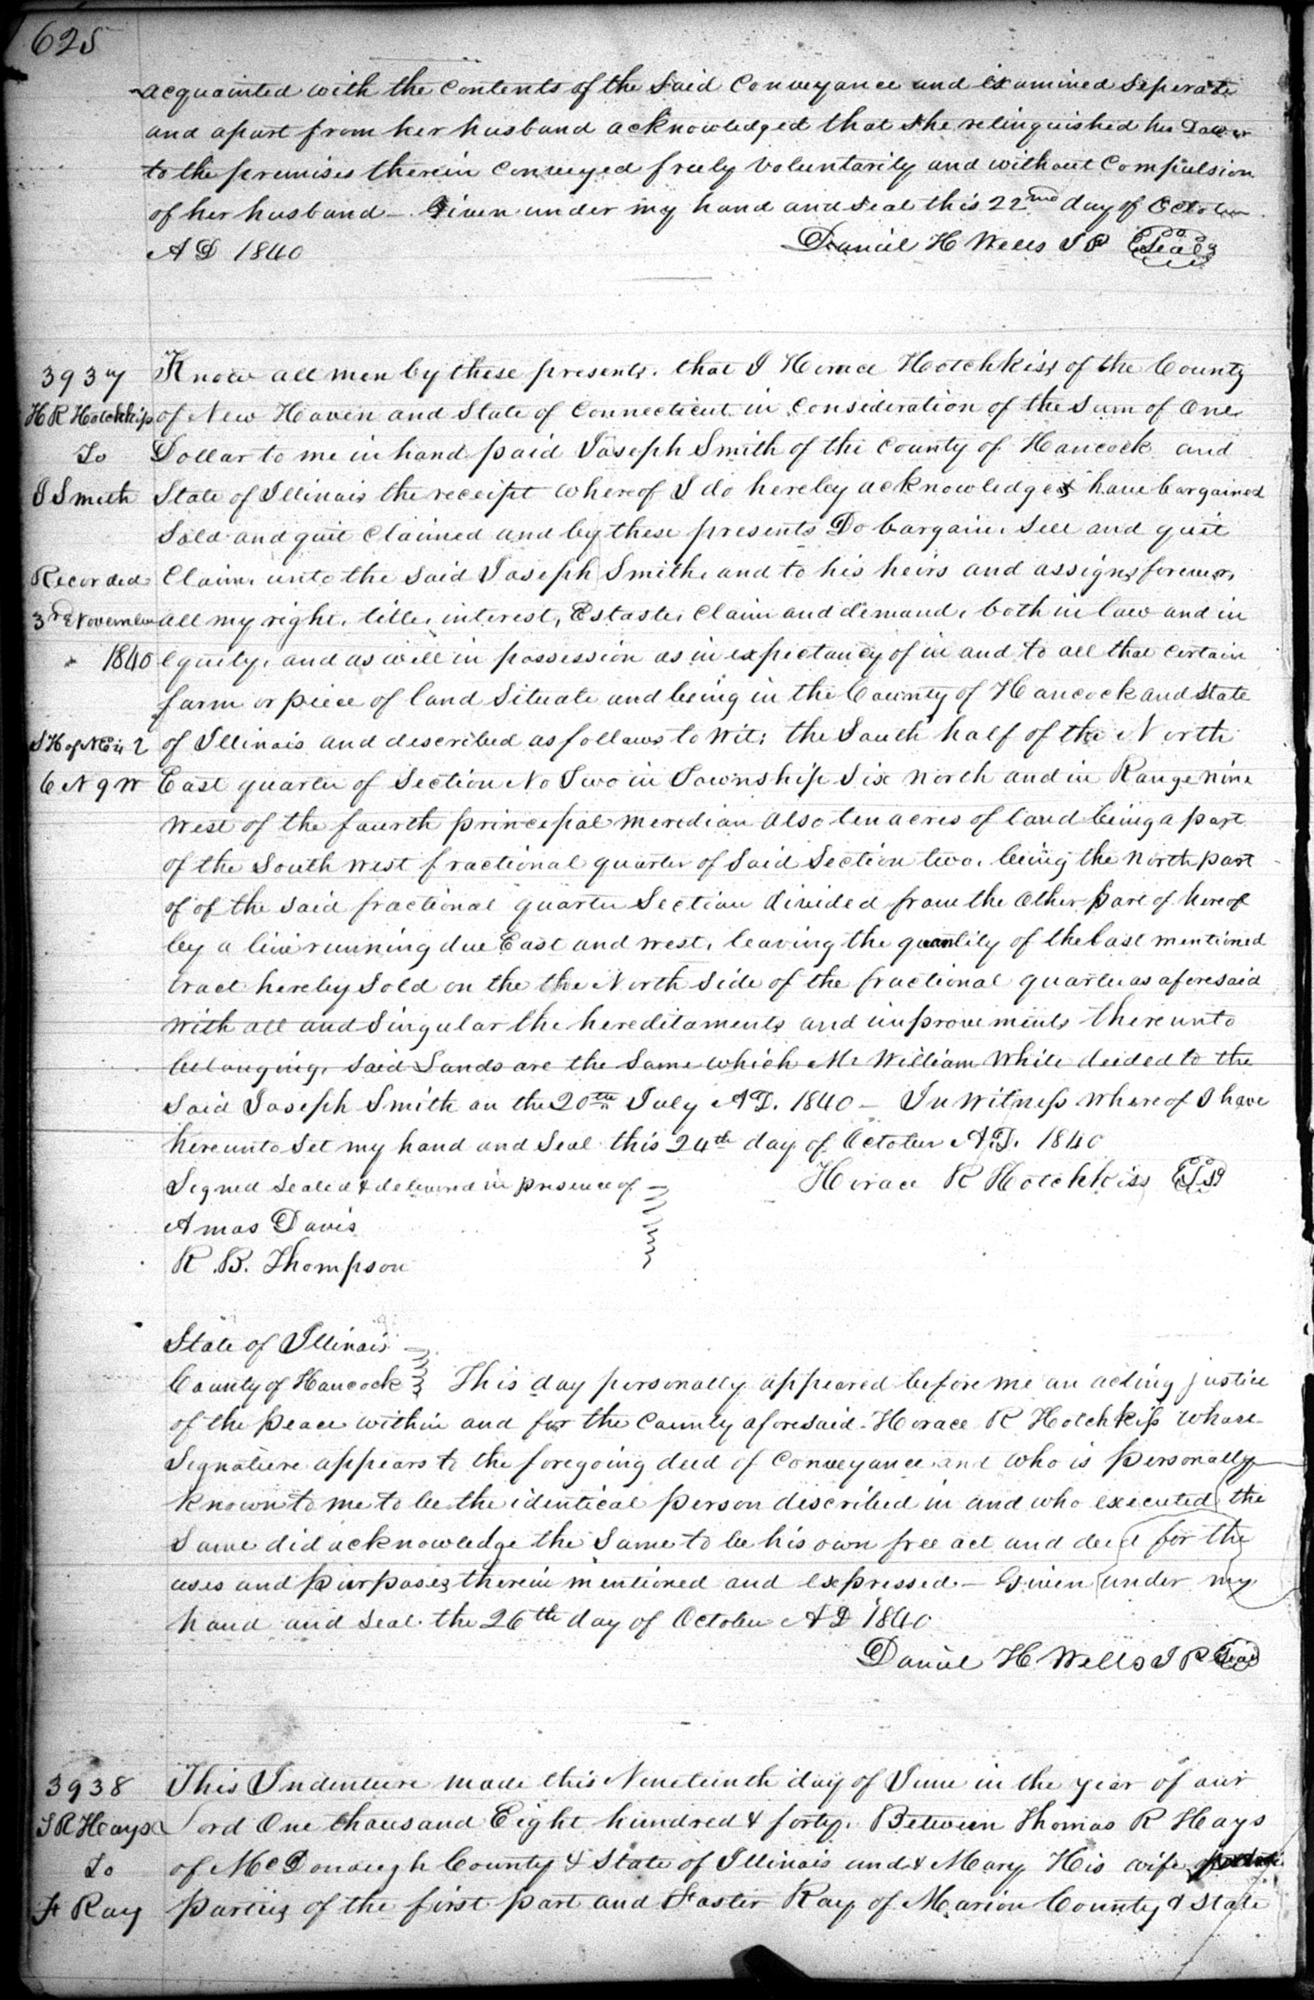 625
acquainted with the contents of the said Conveyance and examined Seperate
and apart from her husband acknowledged that she relinquished her Dower
to the premises therein Conveyed freely Voluntarily and without Compulsion
of her husband — Given under my hand and seal this 22nd day of October
A D 1840
Daniel H Wells J P Seal
3937
H R Hotchkiss
To
J Smith
Recorded
3rd November
1840
S H of N E qr 2
6 N 9 W
Know all men by these presents. that I Horace Hotchkiss of the County
of New Haven and State of Connecticut in Consideration of the Sum of One
Dollar to me in hand paid Joseph Smith of the County of Hancock and
State of Illinois the receipt whereof I do hereby acknowledge & have bargained
Sold and quit Claimed and by these presents Do bargain, Sell and quit
Claim, unto the Said Joseph Smith, and to his heirs and assigns forever,
all my right, title, interest, Estaste, Claim and demand, both in law and in
equity, and as well in possession as in expectancy of in and to all that certain
farm or piece of land Situate and being in the County of Hancock and State
of Illinois and described as follows to Wit; the South half of the North
East quarter of Section No Two in Township Six North and in Range nine
West of the fourth principal meridian also ten acres of land being a part
of the South West fractional quarter of Said Section two, being the North part
of of the Said fractional quarter Section divided from the Other part of hereof
by a line running due East and West, leaving the quantity of the last mentioned
tract hereby Sold on the the North Side of the fractional quarter as aforesaid
With all and Singular the hereditaments and improvements thereunto
belonging, Said Lands are the Same which Mr William White deeded to the
Said Joseph Smith on the 20th July A D. 1840 — In Witness Whereof I have
hereunto Set my hand and Seal this 24th day of October A.D. 1840
Signed Sealed & delivered in presence of
Horace R Hotchkiss
Amos Davis
R. B. Thompson
State of Illinois
County of Hancock This day personally appeared before me an acting justice
of the peace within and for the County aforesaid. Horace R Hotchkiss Whose
Signature appears to the foregoing deed of Conveyance and who is personally
known to me to be the identical person discribed in and who executed the
Same did acknowledge the Same to be his own free act and deed for the
uses and purposes therein mentioned and expressed — Given under my
hand and Seal the 26th day of October A D 1840
Daniel H Wells J P Seal
3938
T R Hays
To
F Ray
This Indenture made this Nineteinth day of June in the year of our
Lord One thousand Eight hundred & forty. Between Thomas R Hays
of McDonough County & State of Illinois and & Mary His wife
parties of the first part and Foster Ray of Marion County & State